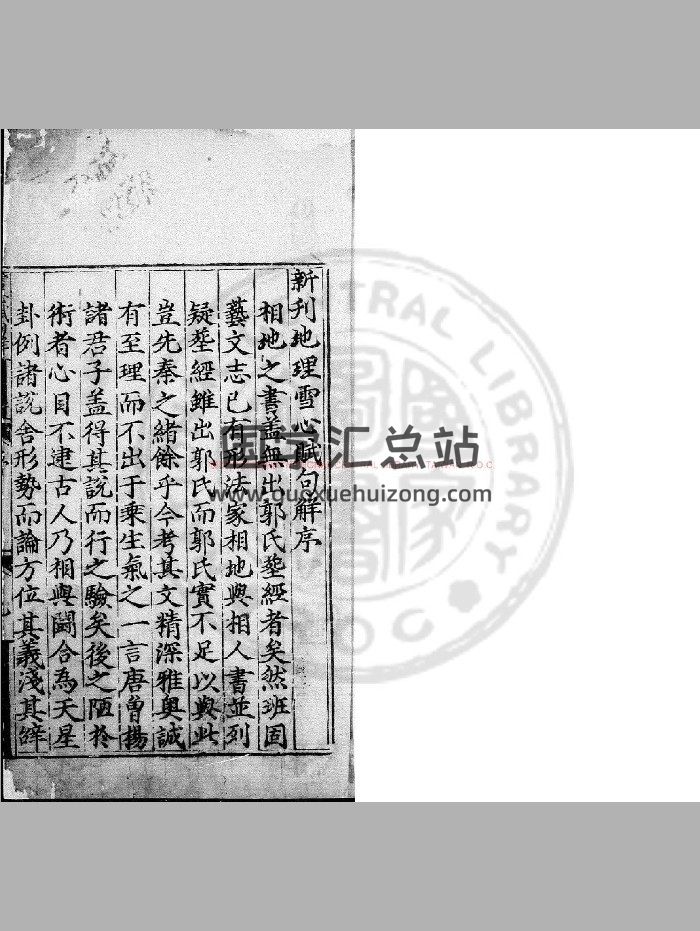 新刋地理雪心賦句解序
相地之書蓋無出郭氏塟經者矣然班固
藝文志已有形法家相地與相人書並列
疑塟經雖出郭氏而郭氏實不足以與此
豈先秦之緒餘乎今考其文精深雅奧誠
有至理而不出于乘生氣之一言唐曾楊
諸君子盖得其說而行之驗矣後之陋於
術者心目不逮古人乃相與闘合為天星
卦例諸說舍形勢而論方位其義淺其辝
国学汇总站
www.guoxuehuizong.com
CENTRAL LIBRARY